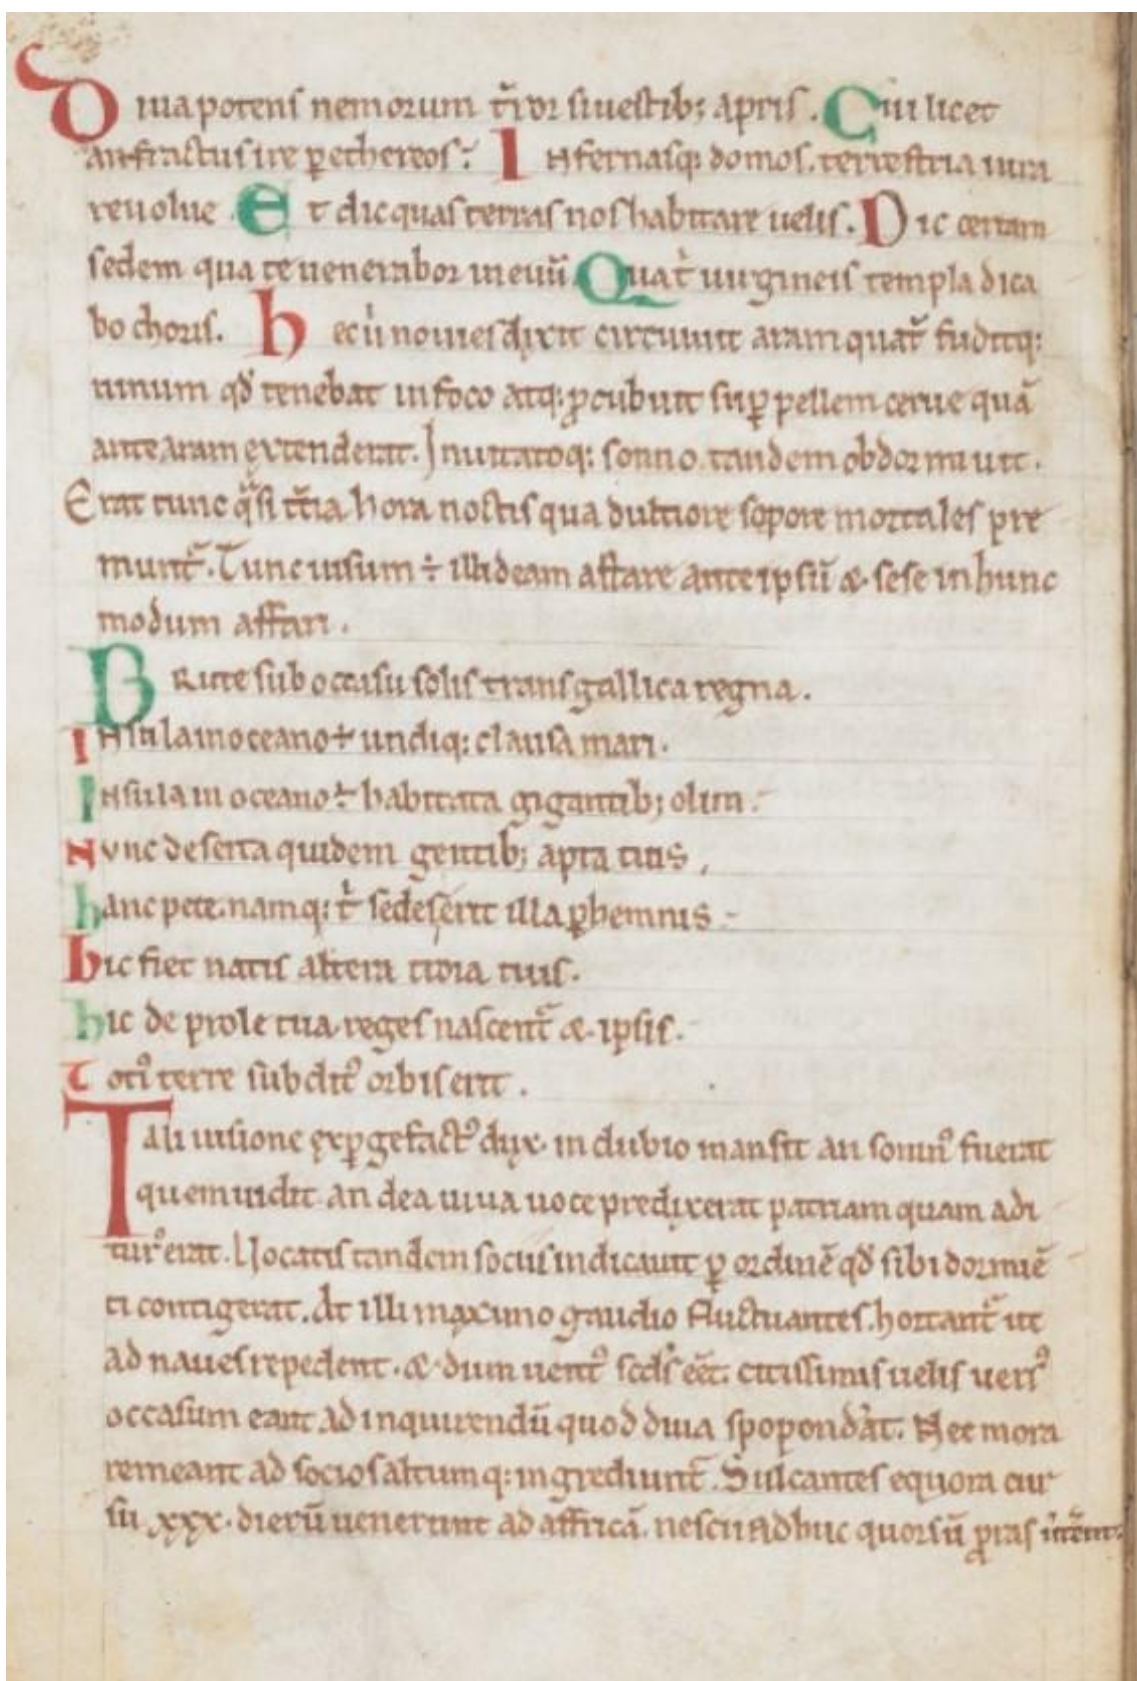 Diua potens nemorum t̄ror siluestib; apris. Cui licet
anfractus ire ꝑ ethereos. Infernasq; domos. terrestria iura
reuolue Et dic quas terras nos habitare uelis. Dic certam
sedem qua te uenerabor in euū Qua t̉ uirgineis templa dica
bo choris. hec ū nouies dixit circuiuit aram quat̉ fuditq;
uinum qđ tenebat in foco atq; ꝓcubuit suꝑ pellem cerue quā
ante aram extenderat. Inuitatoq; sonno tandem obdormiuit.
Erat tunc q̄si t̄cia hora noctis qua dultiore sopore mortales pre
munt̄. Tunc uisum ÷ illi deam astare ante ipsū & sese in hunc
modum affari.
Brute sub occasu solis trans gallica regna.
Insula in oceano ÷ undiq; clausa mari.
Insula in oceano ÷ habitata gigantib; olim.
Nunc deserta quidem gentib; apta tuis,
hanc pete. namq; t̉ sedes erit illa ꝑhennis
hic fiet natis altera troia tuis.
hic de prole tua. reges nascent̄ & ipsis.
Totꝰ terre subditꝰ orbis erit.
Tali uisione exꝑgefactꝰ dux. in dubio mansit an somnꝰ fuerat
quem uidit. an dea uiua uoce predixerat patriam quam adi
turꝰ erat. Uocatis tandem sociis indicauit ꝑ ordinē qđ sibi dormiē
ti contigerat. At illi maximo gaudio fluctuantes. hortant̄ ut
ad naues repedent. & dum uentꝰ scd̄s eēt. citissimis uelis uersꝰ
occasum eant ad inquirendū quod diua spoponderat. Nec mora
remeant ad socios altumq; ingrediunt̄. Sulcantes equora cur
su .xxx. dierū uenerunt ad affricā. nescii adhuc quorsū ꝓras